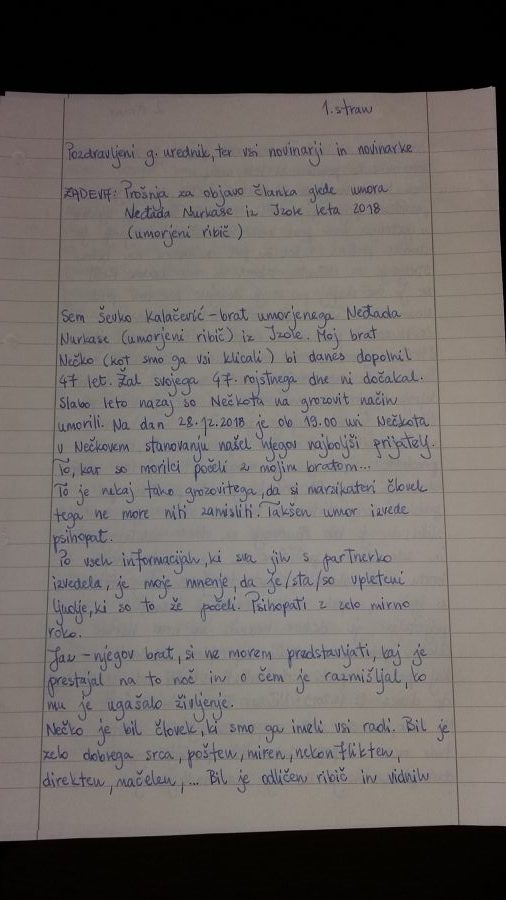 1. stran
Pozdravljeni g. urednik, ter vsi novinarji in novinarke
ZADEVA: Prošnja za objavo članka glede umora
Neđada Nurkaše iz Izole leta 2018
(umorjeni ribič)
Sem Ševko Kalačerić - brat umorjenega Neđada
Nurkaše (umorjeni ribič) iz Izole. Moj brat
Nečko (kot smo ga vsi klicali) bi danes dopolnil
47 let. Žal svojega 47. rojstnega dne ni dočakal.
Slabo leto nazaj so Nečkota na grozovit način
umorili. Na dan 28.12.2018 je ob 19.00 uri Nečkota
v Nečkovem stanovanju našel njegov najboljši prijatelj.
To, kar so morilci počeli z mojim bratom...
To je nekaj tako grozovitega, da si marsikateri človek
tega ne more niti zamisliti. Takšen umor izvede
psihopat.
Po vseh informacijah, ki sva jih s partnerko
izvedela, je moje mnenje, da je/sta/so vpleteni
ljudje, ki so to že počeli. Psihopati z zelo mirno
roko.
Jaz - njegov brat, si ne morem predstavljati, kaj je
prestajal na to noč in o čem je razmišljal, ko
mu je ugašalo življenje.
Nečko je bil človek, ki smo ga imeli vsi radi. Bil je
zelo dobrega srca, pošten, miren, nekonflikten,
direkten, načelen, ... Bil je odličen ribič in vidnih